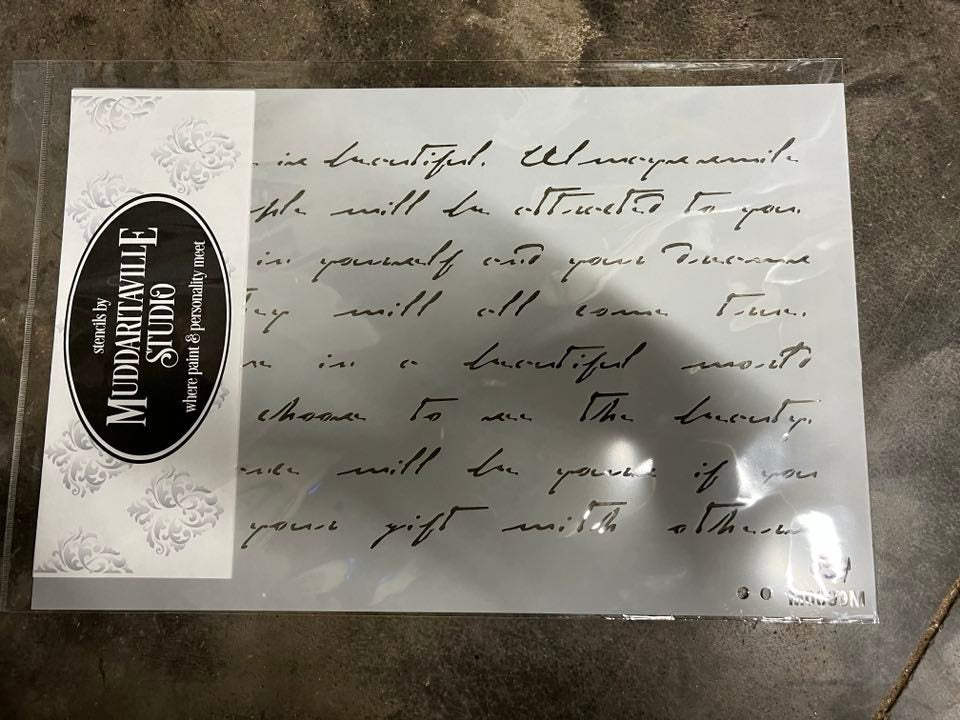 stencils by
MUDDARITAVILLE
STUDIO
where paint & personality meet
is beautiful. Always smile
will be attracted to you.
in yourself and your dreams
will all come true.
is a beautiful world
choose to see the beauty.
will be yours if you
your gift with others